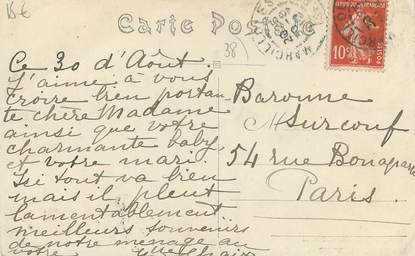 B6
Carte Postale
38
Ce 30 d'Août
J'aime à vous
croire bien portan
te, chère Madame
ainsi que votre
charmante baby
et votre mari
Ici tout va bien
mais il pleut
lamentablement
meilleurs souvenirs
de notre menage au
votre
Baronne
Surcouf
54 rue Bonaparte
Paris
10
POSTES